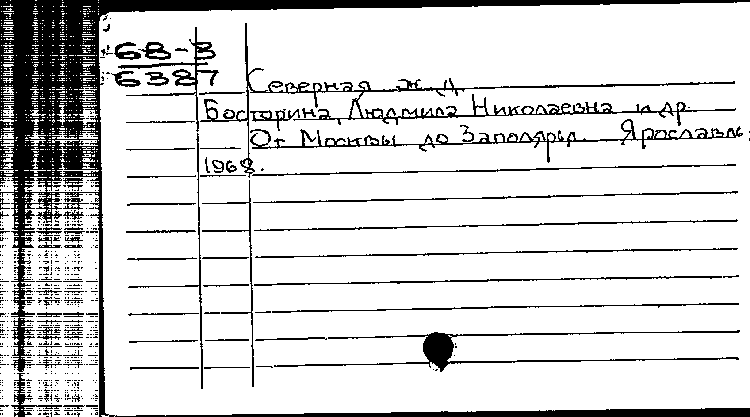 68-3
6387
Северная ж.д.
Босторина, Людмила Николаевна и др.
От Москвы до Заполярья. Ярославль,
1968.